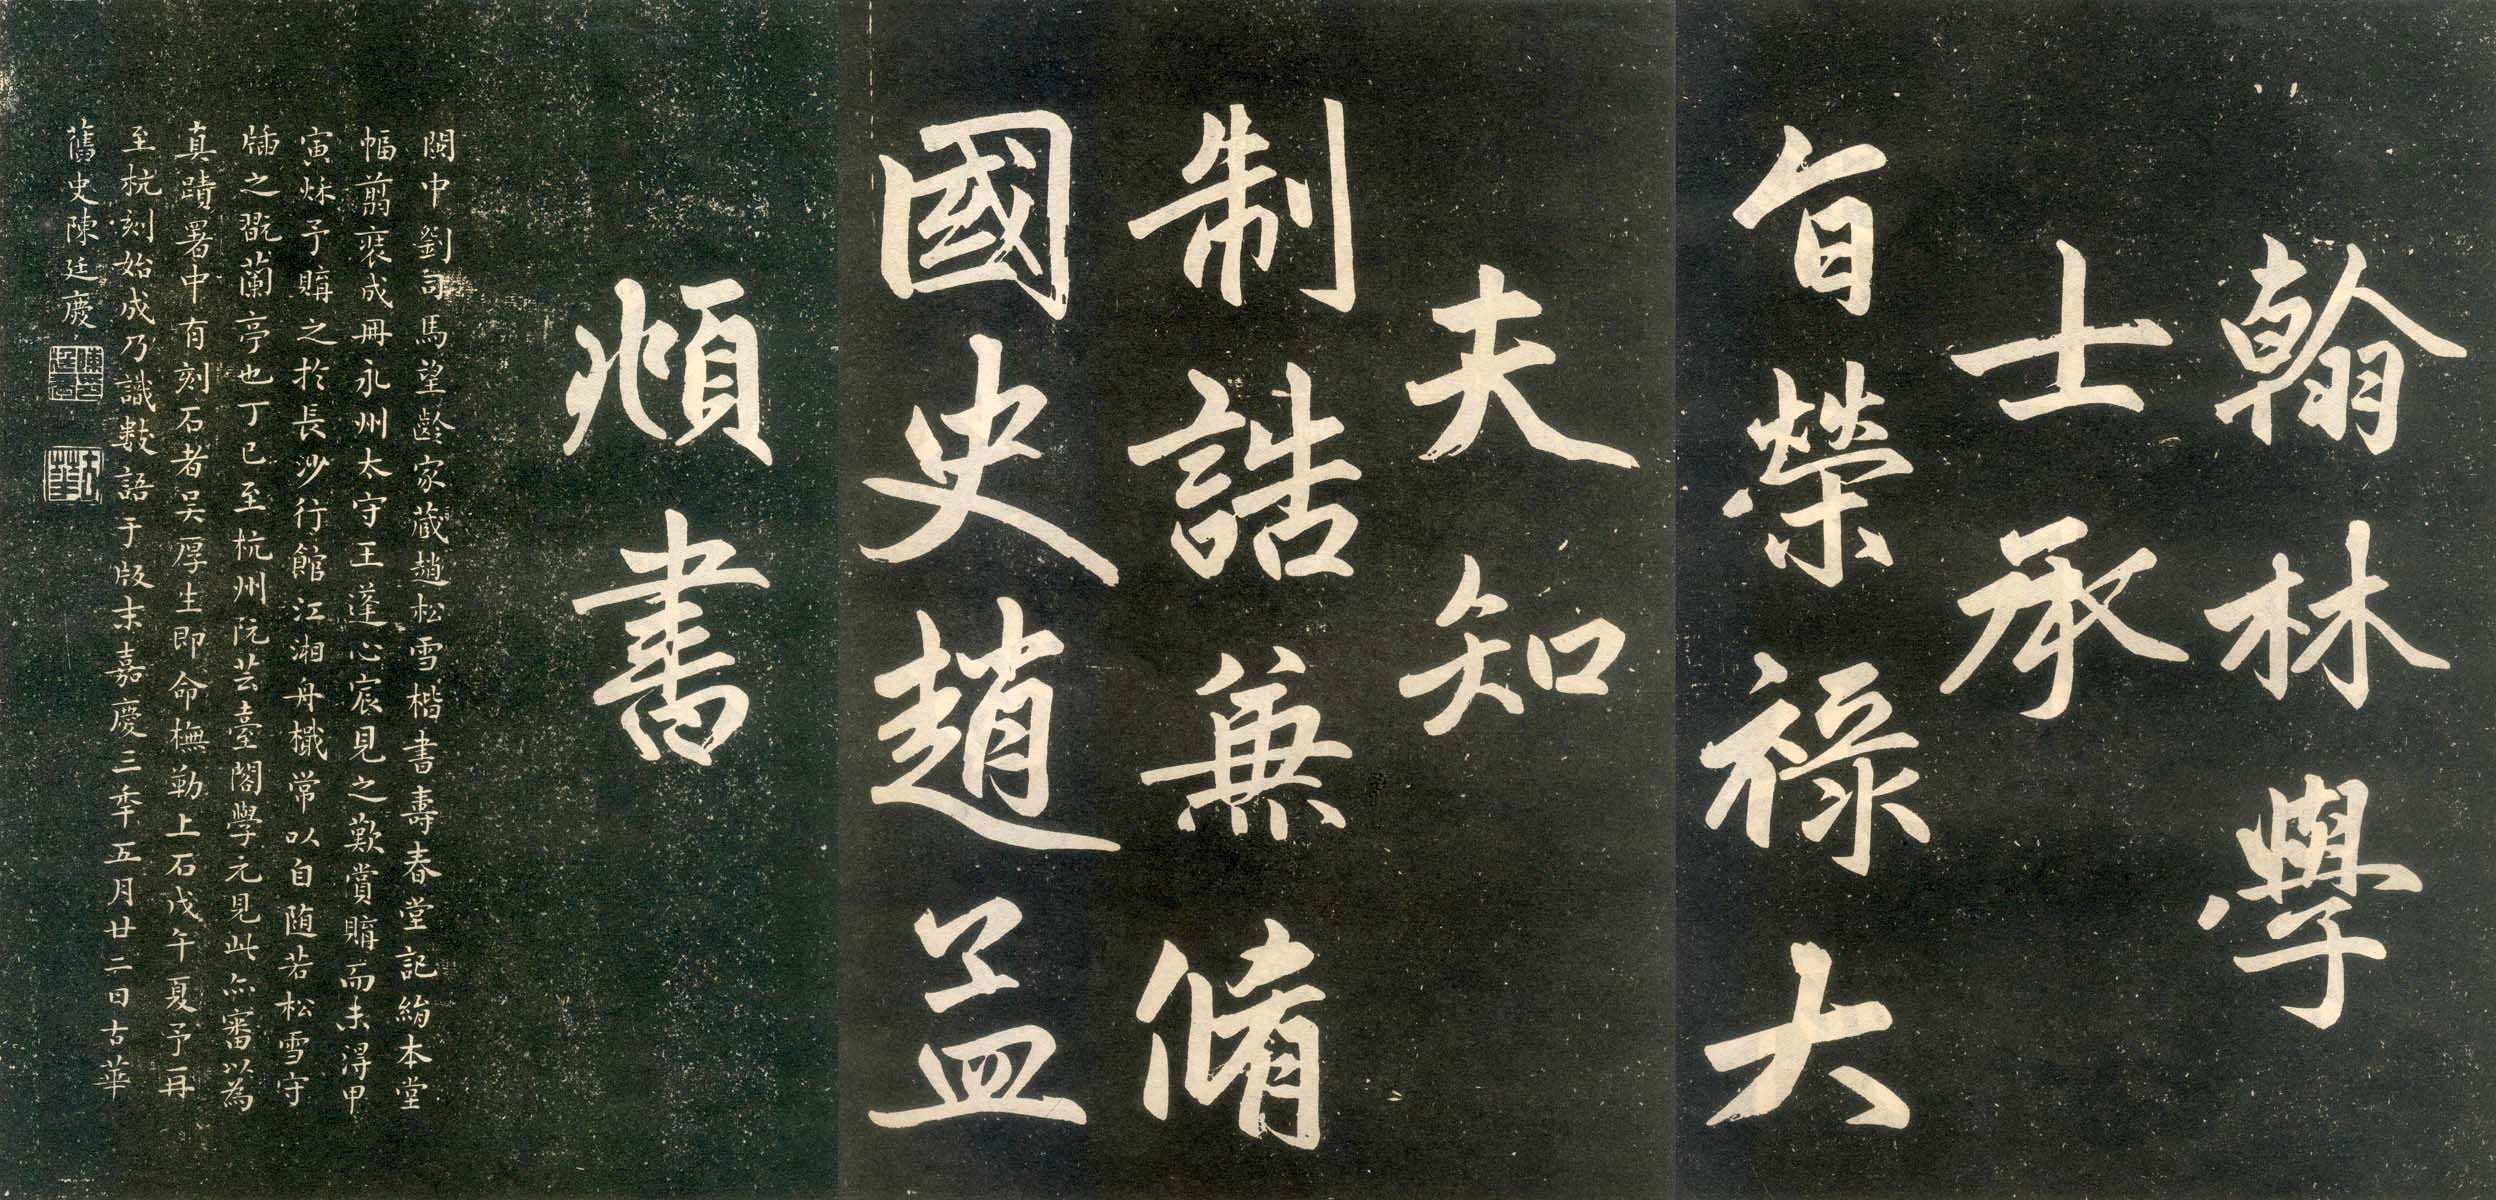 翰林學
士承
旨榮祿大
夫知
制誥兼脩
國史趙孟
頫書
閩中劉司馬望齡家藏趙松雪楷書壽春堂記絹本堂
幅翦裱成冊永州太守王蓬心宸見之歎賞購而未得甲
寅秌予購之於長沙行館江湘舟檥常以自隨若松雪守
之翫蘭亭也丁巳至杭州阮芸臺閣學元見此亦審以為
真蹟署中有刻石者吴厚生即命橅勒上石戊午夏予再
至杭刻始成乃識數語于版末嘉慶三年五月廿二日古華
舊史陳廷慶